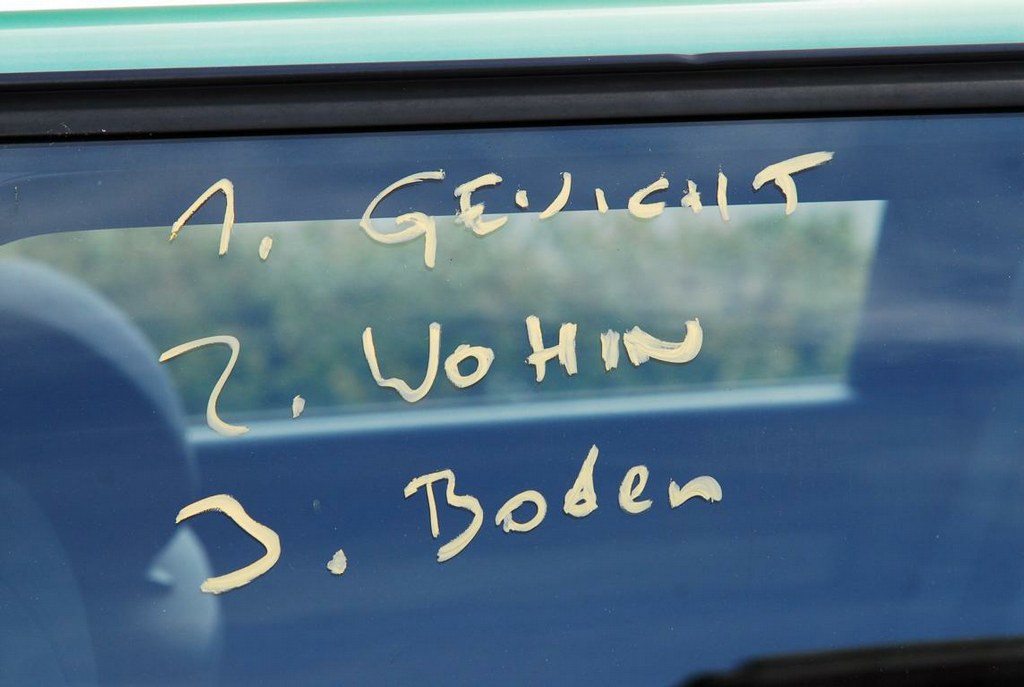 1. GEWICHT
2. WOHIN
3. Boden